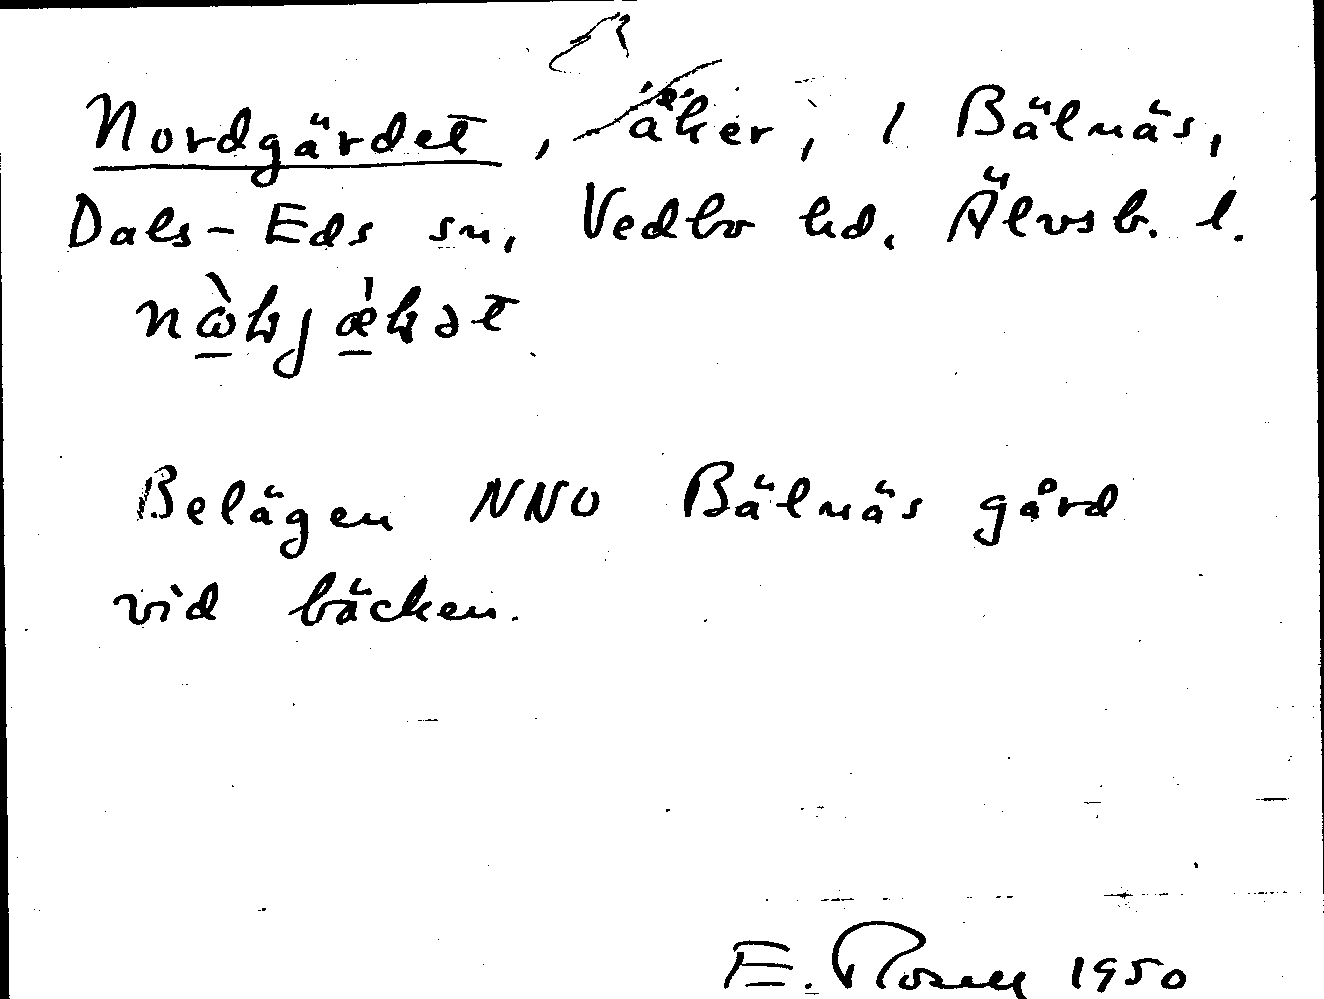 Nordgärdet, åker, / Bälnäs,
Dals-Eds sn, Vedbo hd. Älvsb. l.
Belägen NNO Bälnäs gård
vid bäcken.
E. Rosell 1950